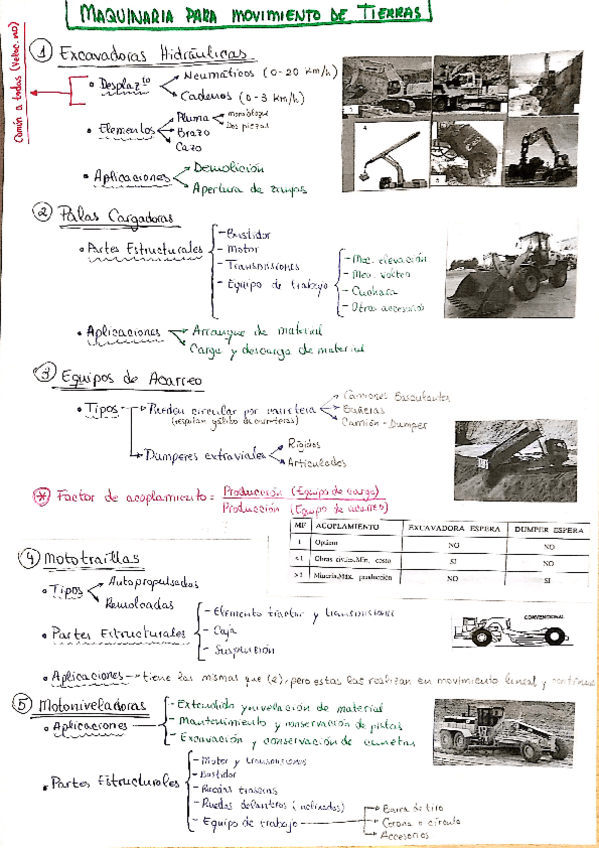 MAQUINARIA PARA MOVIMIENTO DE TIERRAS
Común a todas (Veloc. MO)
1 Excavadoras Hidráulicas
• Desplaz.to
Neumáticos (0-20 Km/h)
Cadenas (0-3 Km/h)
• Elementos
Pluma
monobloque
Dos piezas
Brazo
Cazo
• Aplicaciones
Demolición
Apertura de zanjas
2 Palas Cargadoras
• Partes Estructurales
- Bastidor
- Motor
- Transmisiones
- Equipo de trabajo
- Mec. elevación
- Mec. volteo
- Cuchara
- Otros accesorios
• Aplicaciones
Arranque de material
Carga y descarga de material
3 Equipos de Acarreo
• Tipos
Pueden circular por carretera
(respetan gálibo de carreteras)
Camiones Basculantes
Bañeras
Camión-Dumper
Dumperes extraviales
Rígidos
Articulados
* Factor de acoplamiento = Producción (Equipo de carga)
Producción (Equipo de acarreo)
MF ACOPLAMIENTO EXCAVADORA ESPERA DUMPER ESPERA
1 Optimo NO NO
<1 Obras civiles.Min. costo SI NO
>1 Minería.Máx. producción NO SI
4 Mototraíllas
• Tipos
Autopropulsadas
Remolcadas
• Partes Estructurales
- Elemento tractor y transmisiones
- Caja
- Suspensión
CONVENTIONAL
• Aplicaciones - tiene las mismas que (2), pero estas las realizan en movimiento lineal y continuo
5 Motoniveladoras
• Aplicaciones
- Extendido y nivelación de material
- Mantenimiento y conservación de pistas
- Excavación y conservación de cunetas
• Partes Estructurales
- Motor y transmisiones
- Bastidor
- Ruedas traseras
- Ruedas delanteras (inclinadas)
- Equipo de trabajo
Barra de tiro
Corona o círculo
Accesorios